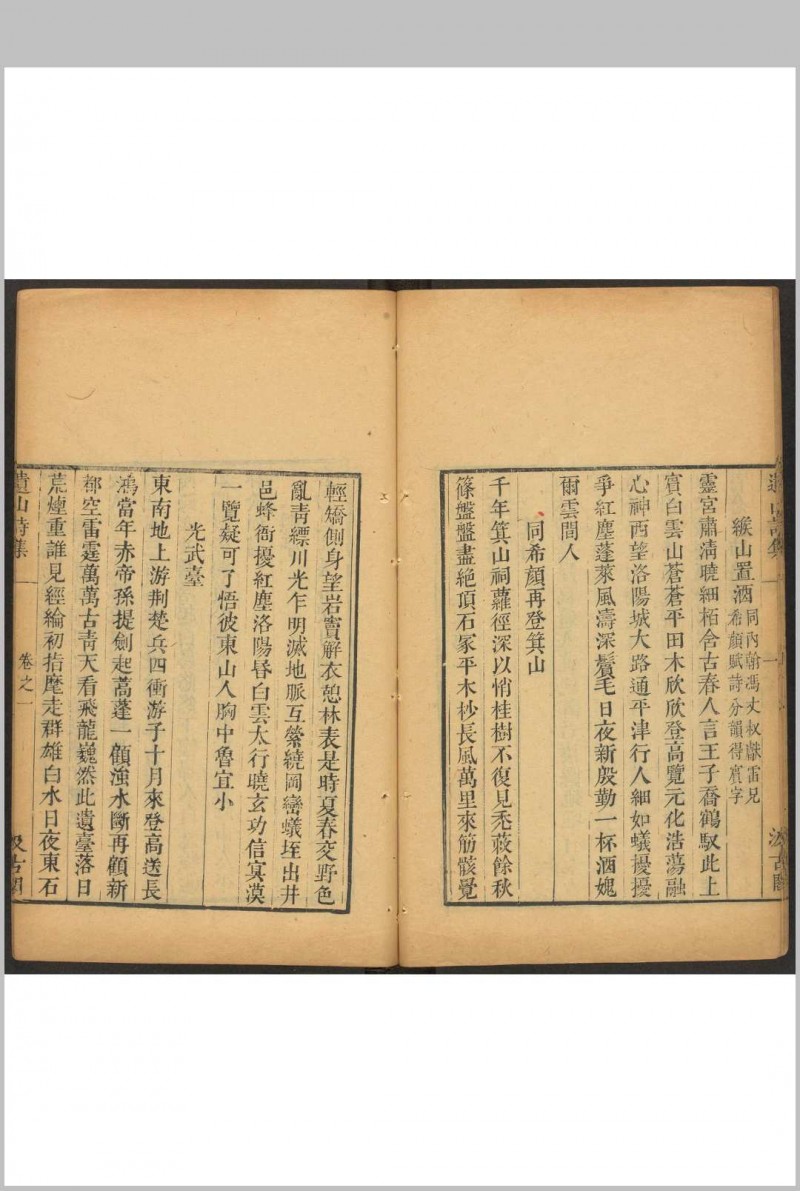 緱山置酒
同內翰馮丈叔獻雷兄
希顏賦詩分韻得賓字
靈宮肅清曉細栢含古春人言王子喬鶴馭此上
賓白雲山蒼蒼平田木欣欣登高覽元化浩蕩融
心神西望洛陽城大路通平津行人細如蟻擾擾
爭紅塵蓬萊風濤深鬢毛日夜新殷勤一杯酒媿
爾雲間人
同希顏再登箕山
千年箕山祠蘿徑深以悄桂樹不復見禿薮餘秋
篠盤盤盡絶頂石冢平木杪長風萬里來筋骸覺
輕矯側身望岩竇解衣憩林表是時夏春交野色
亂青縹川光乍明滅地脈互縈繞岡巒蟻垤出井
邑蜂衙擾紅塵洛陽昏白雲太行曉玄功信冥漠
一覽疑可了悟彼東山人胸中魯宜小
光武臺
東南地上游荆楚兵四衝游子十月來登高送長
鴻當年赤帝孫提劍起蒿蓬一顧強水斷再顧新
都空雷霆萬萬古青天看飛龍巍然此遺臺落日
荒煙重誰見經綸初指麾走群雄白水日夜東石
遺山詩集
卷之一
汲古閣